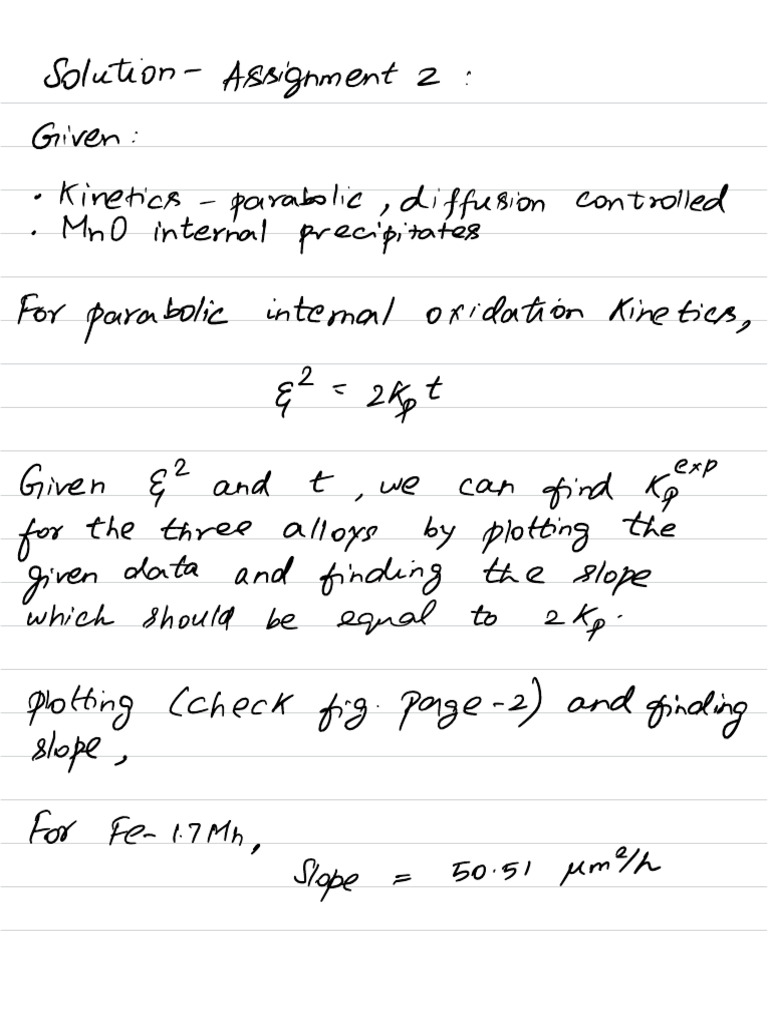 Solution - Assignment 2 :
Given :
• Kinetics - parabolic, diffusion controlled
• MnO internal precipitates
For parabolic internal oxidation kinetics,
ξ² = 2Kₚt
Given ξ² and t, we can find Kₚ^exp
for the three alloys by plotting the
given data and finding the slope
which should be equal to 2Kₚ.
plotting (check fig. page-2) and finding
slope,
For Fe-1.7Mn,
Slope = 50.51 μm²/h